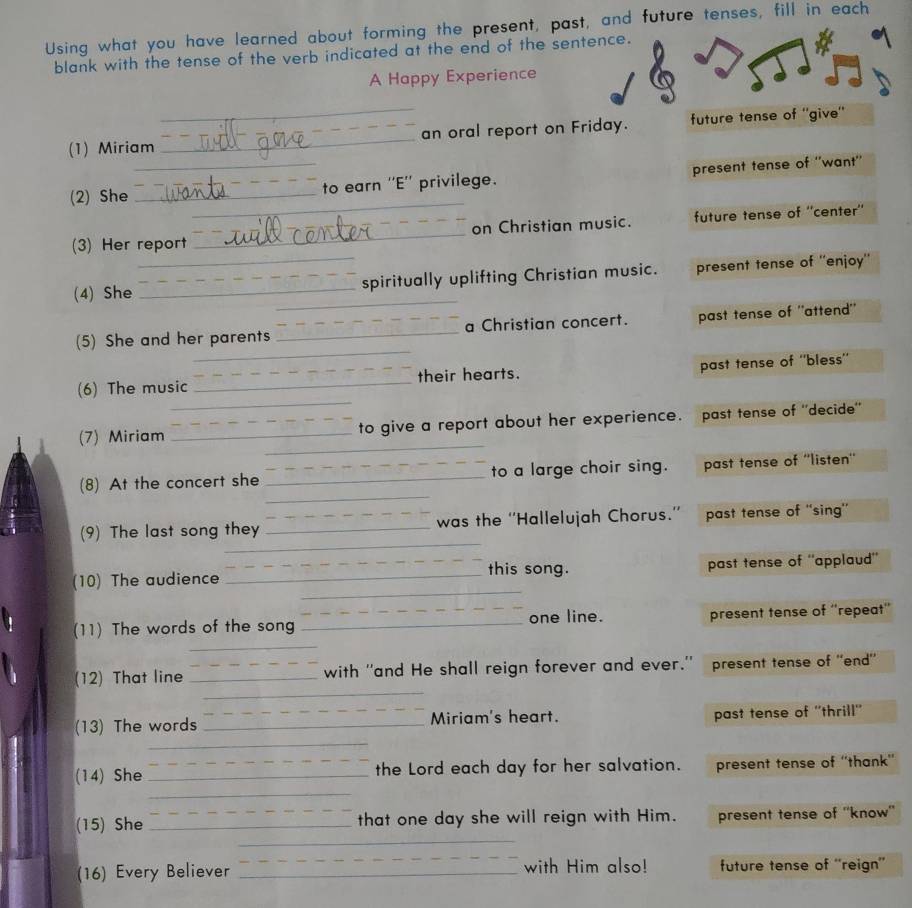 Using what you have learned about forming the present, past, and future tenses, fill in each
blank with the tense of the verb indicated at the end of the sentence.
A Happy Experience
(1) Miriam will give an oral report on Friday. future tense of "give"
(2) She wants to earn "E" privilege. present tense of "want"
(3) Her report will center on Christian music. future tense of "center"
(4) She spiritually uplifting Christian music. present tense of "enjoy"
(5) She and her parents a Christian concert. past tense of "attend"
(6) The music their hearts. past tense of "bless"
(7) Miriam to give a report about her experience. past tense of "decide"
(8) At the concert she to a large choir sing. past tense of "listen"
(9) The last song they was the "Hallelujah Chorus." past tense of "sing"
(10) The audience this song. past tense of "applaud"
(11) The words of the song one line. present tense of "repeat"
(12) That line with "and He shall reign forever and ever." present tense of "end"
(13) The words Miriam's heart. past tense of "thrill"
(14) She the Lord each day for her salvation. present tense of "thank"
(15) She that one day she will reign with Him. present tense of "know"
(16) Every Believer with Him also! future tense of "reign"